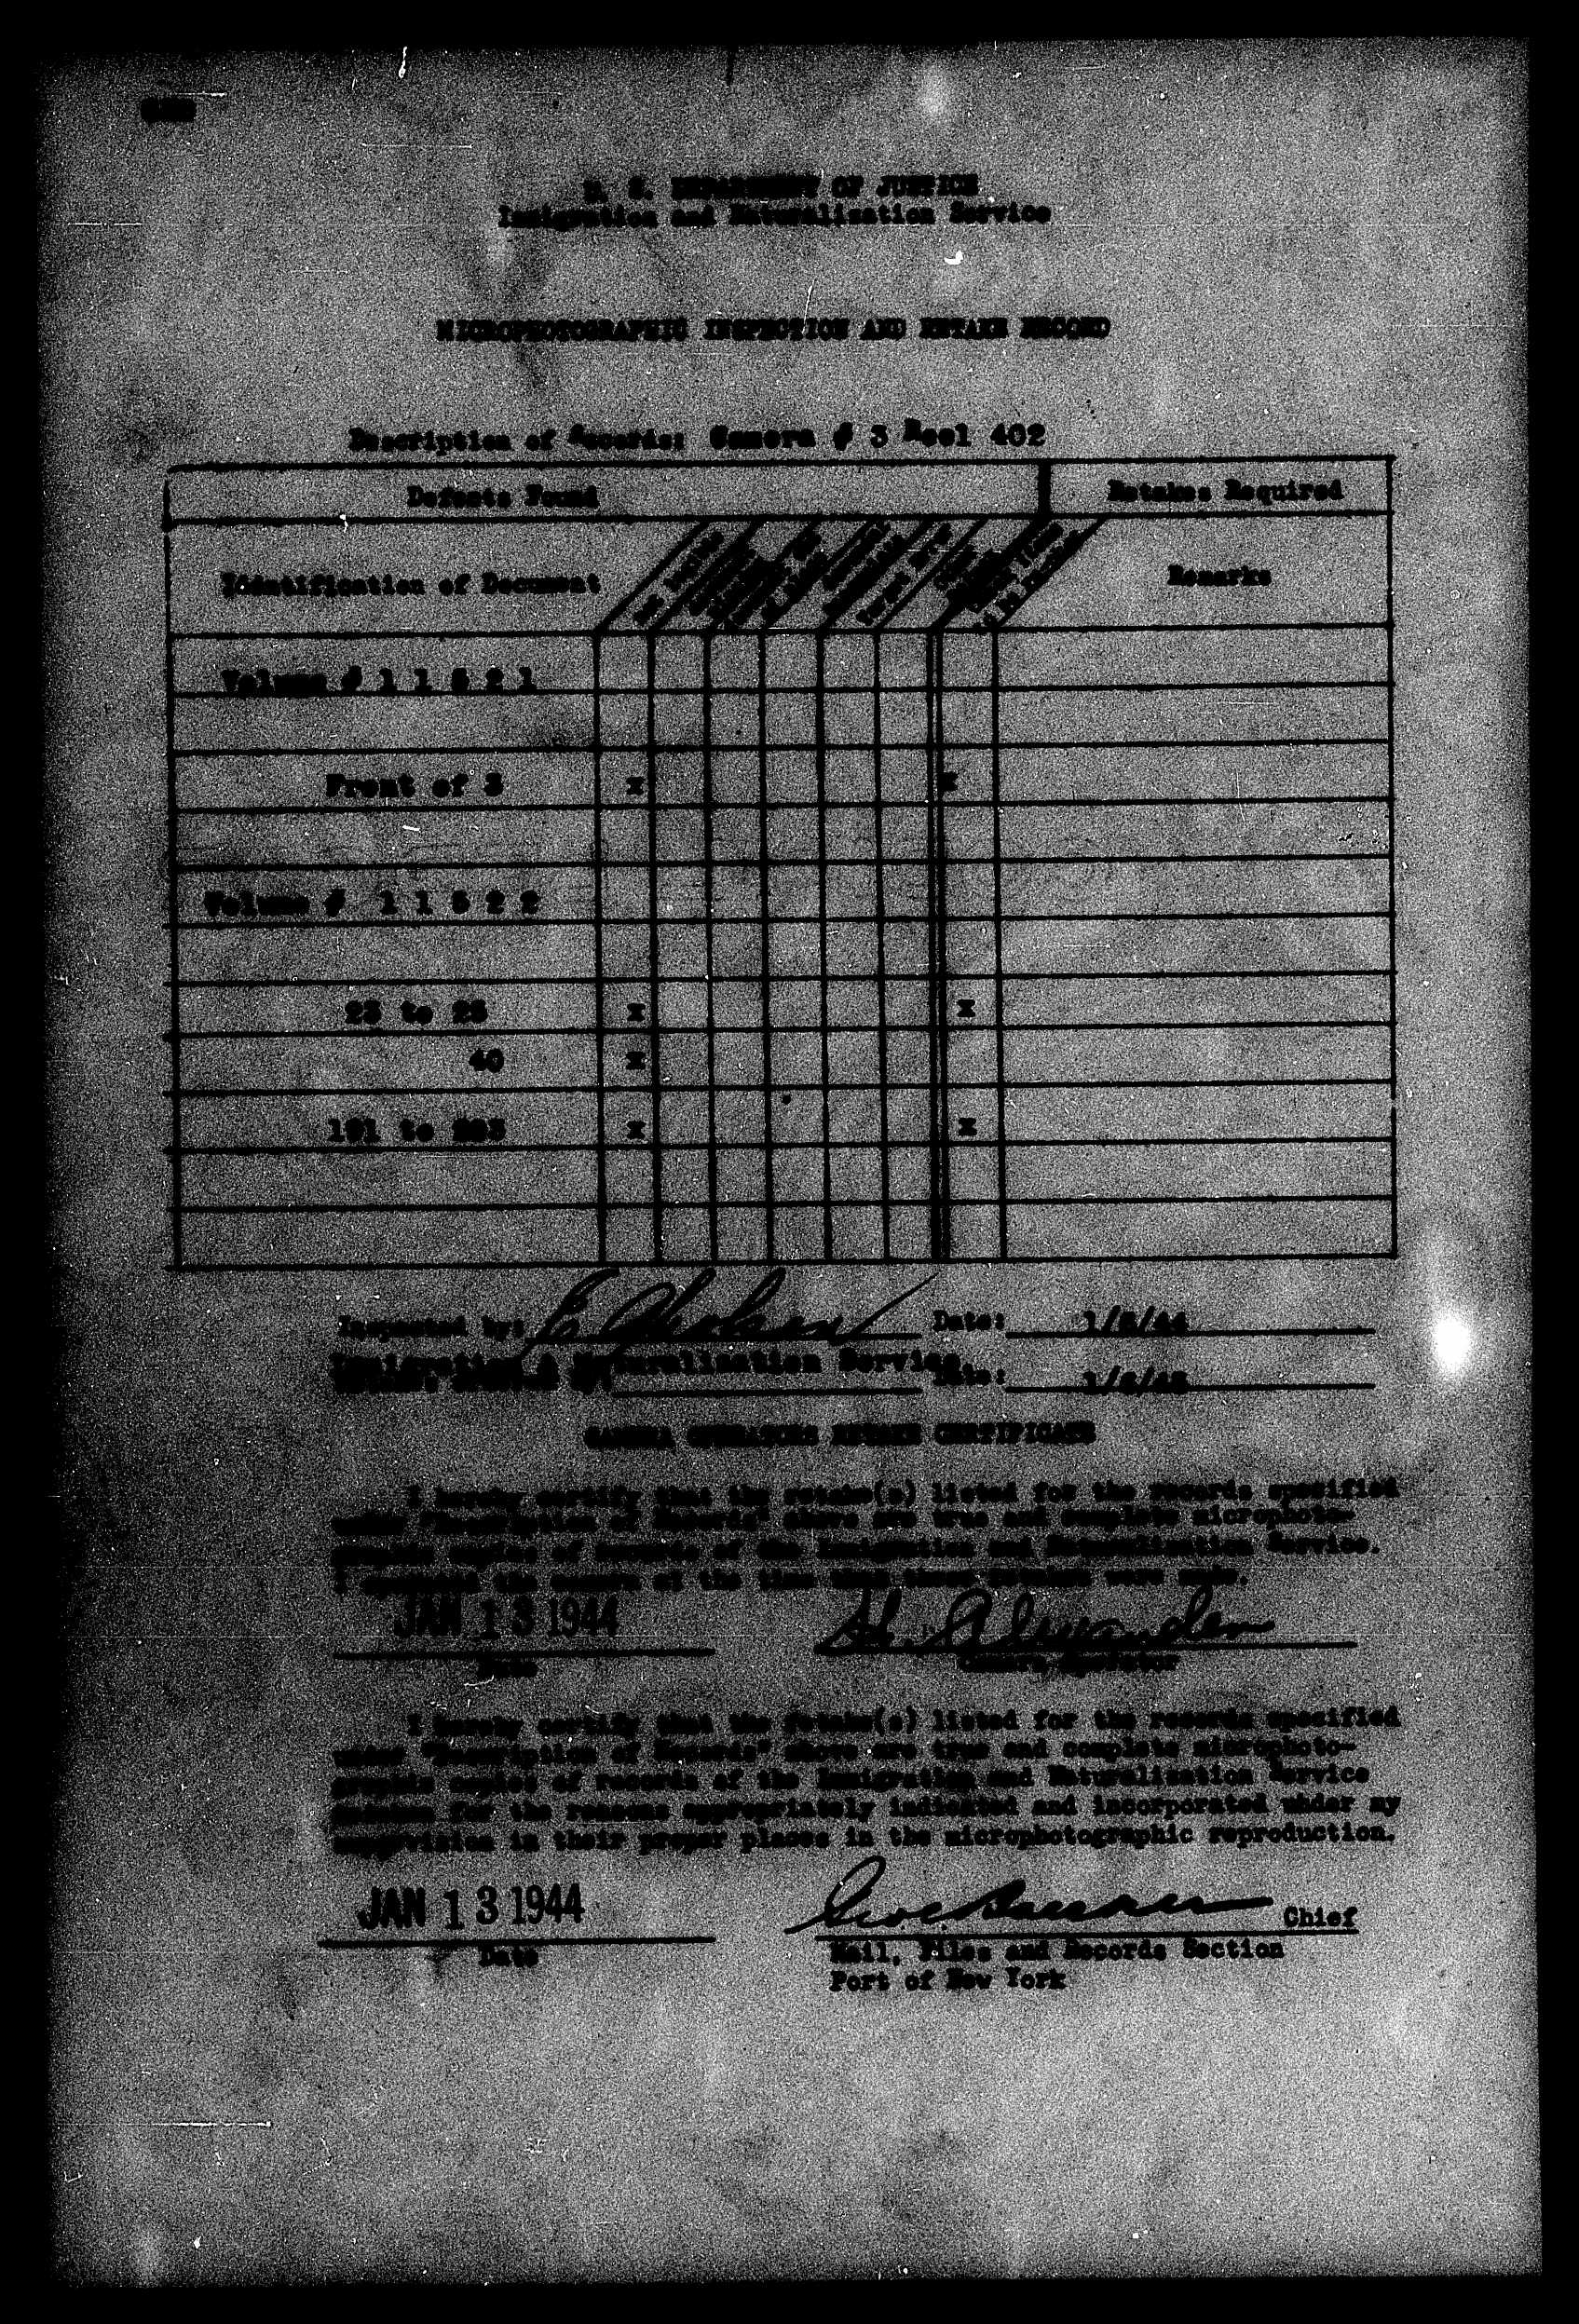 U. S. DEPARTMENT OF JUSTICE
Immigration and Naturalization Service
MICROPHOTOGRAPHIC INSPECTION AND RETAKE RECORD
Description of Records: Camera # 3 Reel 402
Defects Found
Retakes Required
Identification of Document
Remarks
Volume # 1 1 5 2 1
Front of 3 x x
Volume # 1 1 5 2 2
23 to 25 x x
40 x
191 to x x
Inspected by: Date:
Immigration & Naturalization Service
Date:
CAMERA OPERATORS RETAKE CERTIFICATE
I hereby certify that the retake(s) listed for the records specified
under "Description of Records" above are true and complete microphoto-
graphic copies of records of the Immigration and Naturalization Service.
I operated the camera at the time when these retakes were made.
JAN 13 1944 Alexander
Date Camera Operator
I hereby certify that the retake(s) listed for the records specified
under "Description of Records" above are true and complete microphoto-
graphic copies of records of the Immigration and Naturalization Service
retaken for the reasons appropriately indicated and incorporated under my
supervision in their proper places in the microphotographic reproduction.
JAN 13 1944 Chief
Date Mail, Files and Records Section
Port of New York